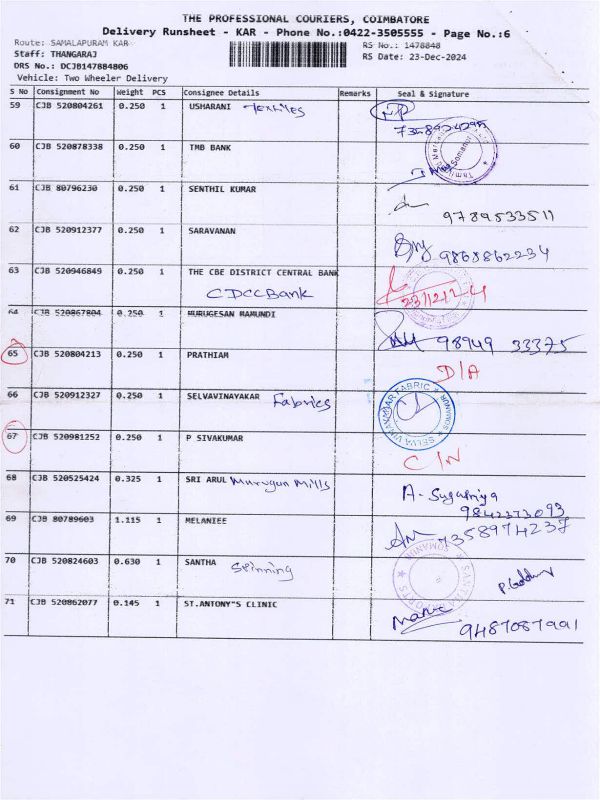 THE PROFESSIONAL COURIERS, COIMBATORE
Delivery Runsheet - KAR - Phone No.:0422-3505555 - Page No.:6
Route: SAMALAPURAM KAR RS No.: 1478848
Staff: THANGARAJ RS Date: 23-Dec-2024
DRS No.: DCJB147884806
Vehicle: Two Wheeler Delivery
S No Consignment No Weight PCS Consignee Details Remarks Seal & Signature
59 CJB 520804261 0.250 1 USHARANI Textiles
60 CJB 520878338 0.250 1 TMB BANK
61 CJB 80796230 0.250 1 SENTHIL KUMAR
9789533511
62 CJB 520912377 0.250 1 SARAVANAN
9868862234
63 CJB 520946849 0.250 1 THE CBE DISTRICT CENTRAL BANK
CDCCBank 23/12/24
64 CJB 520867804 0.250 1 MURUGESAN MAMUNDI
98949 33375
65 CJB 520804213 0.250 1 PRATHIAM
D/A
66 CJB 520912327 0.250 1 SELVAVINAYAKAR Fabrics
SELVA VINAYAKAR FABRIC SOMANUR
67 CJB 520981252 0.250 1 P SIVAKUMAR
C/N
68 CJB 520525424 0.325 1 SRI ARUL Murugan Mills
9842373093
69 CJB 80789603 1.115 1 MELANIEE
7358974237
70 CJB 520824603 0.630 1 SANTHA Spinning
71 CJB 520862077 0.145 1 ST.ANTONY"S CLINIC
9487087991